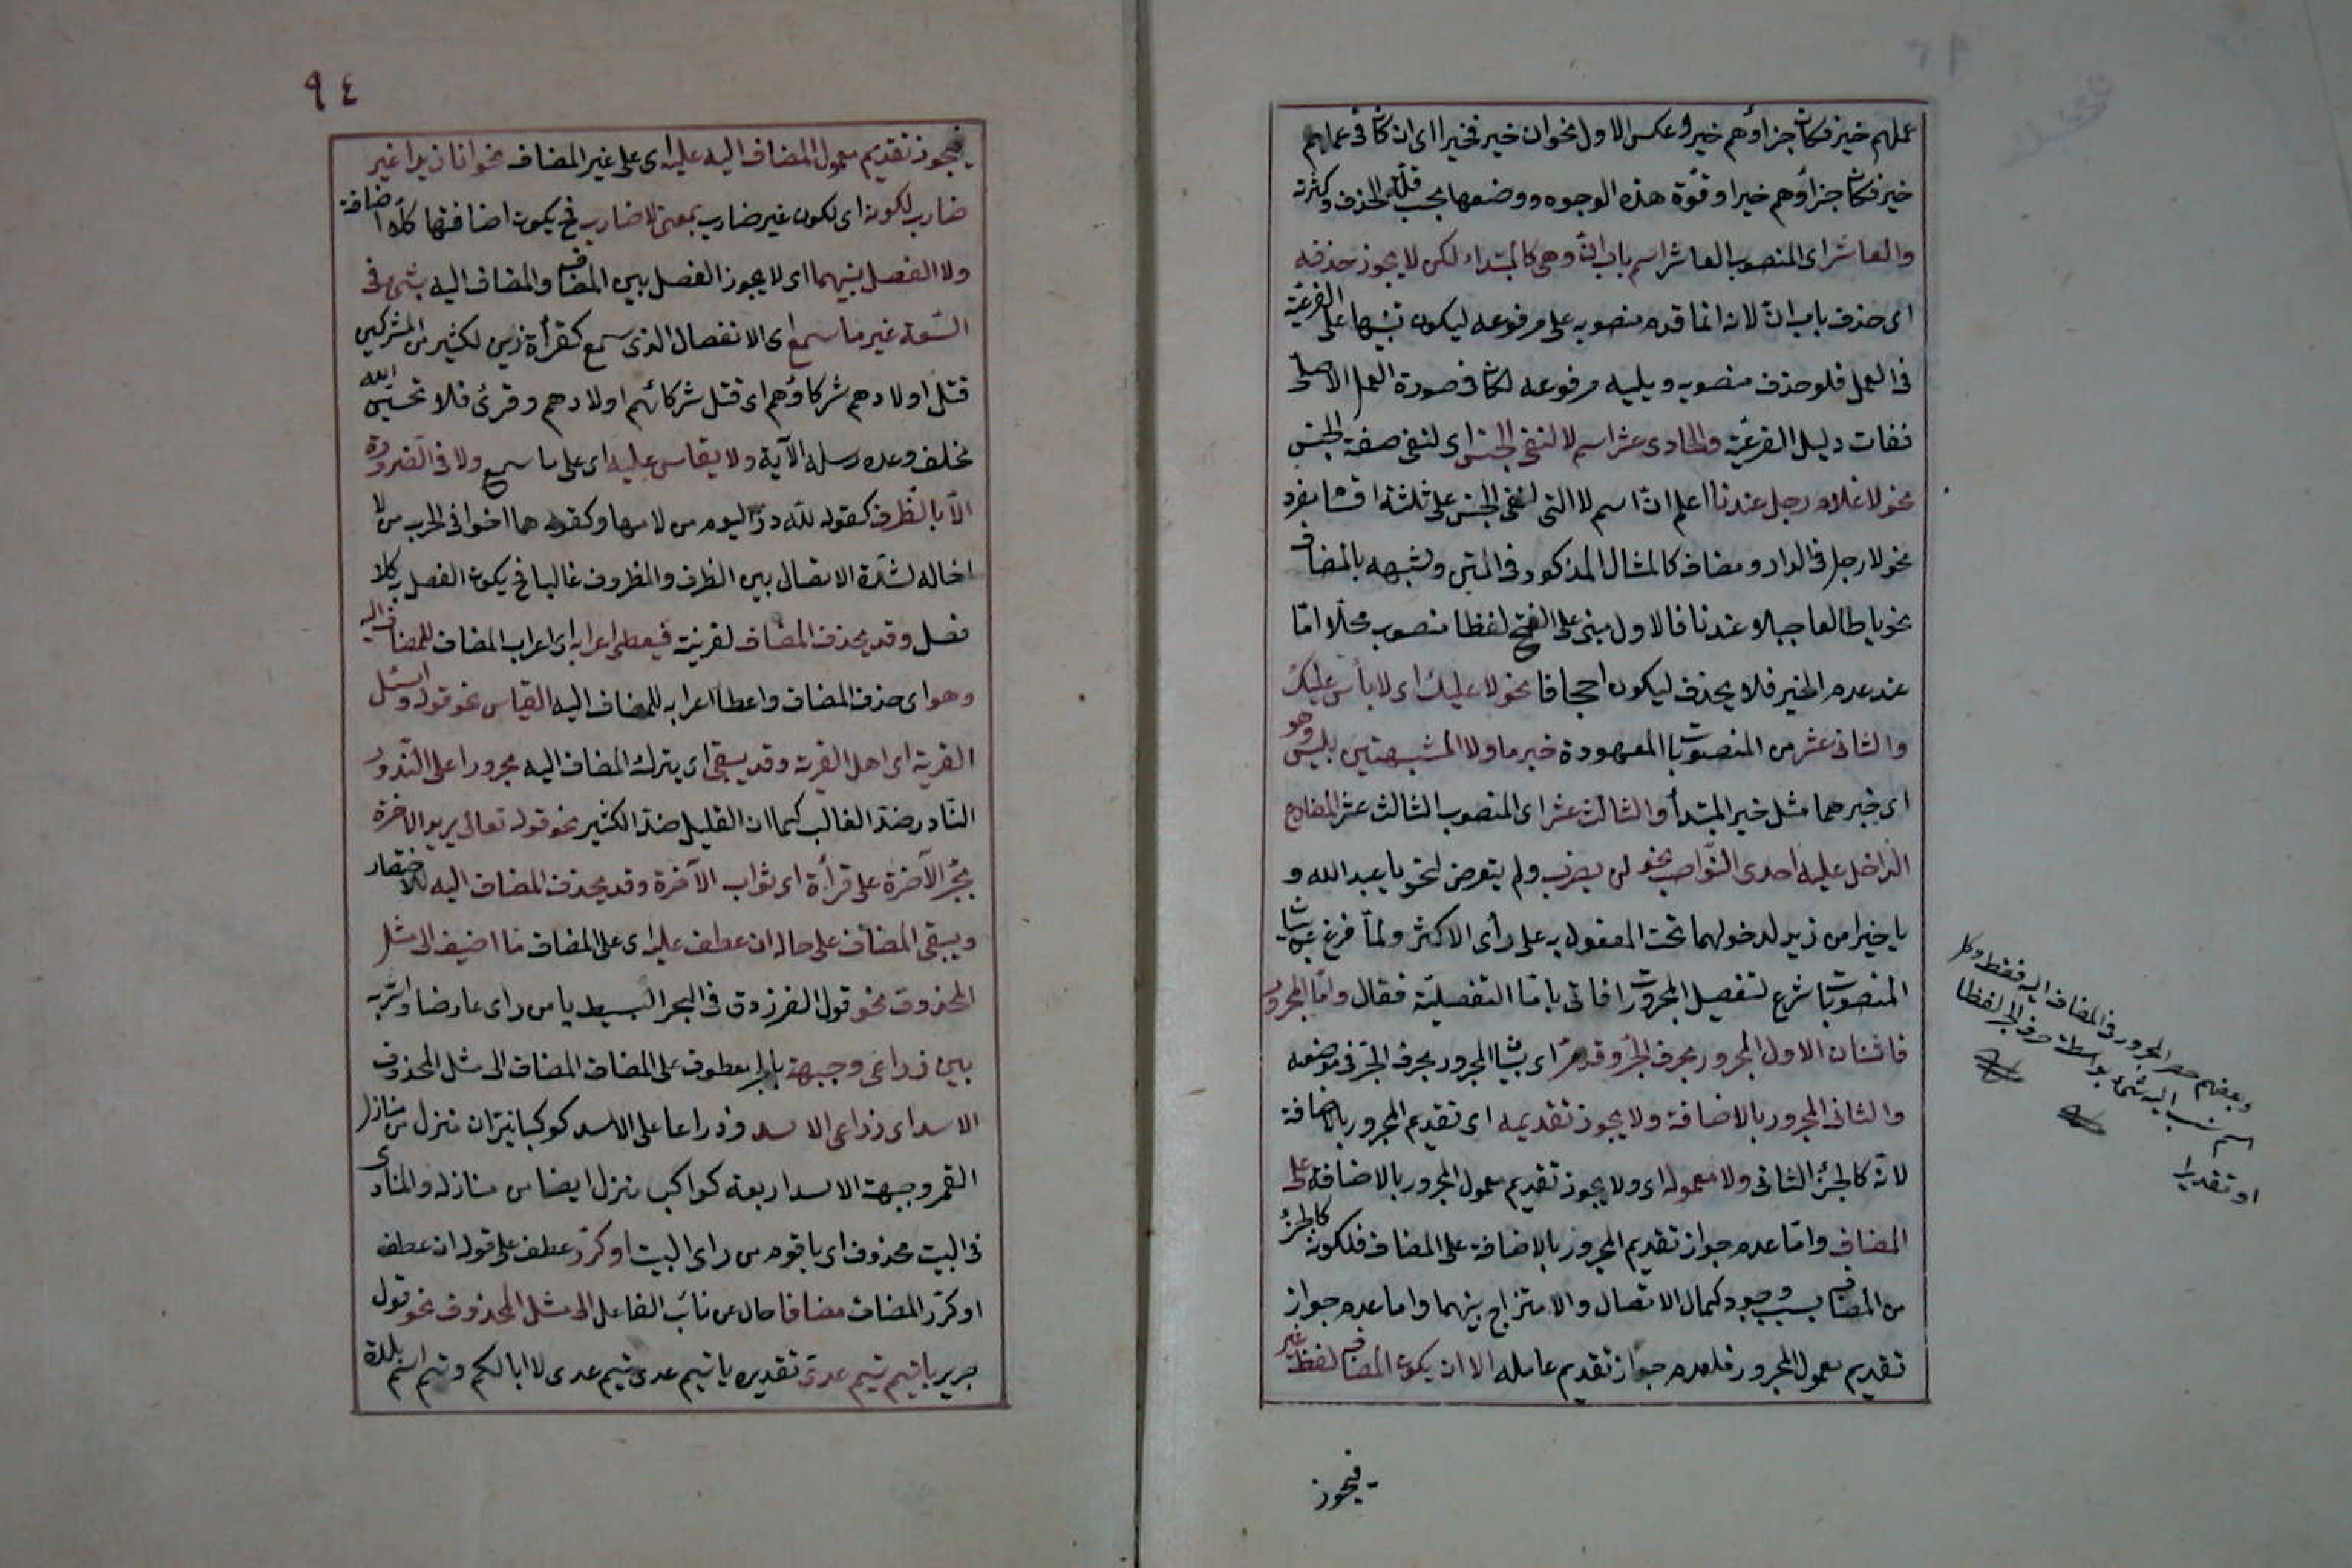 عملهم خير فكان جزاؤهم خيرا وعكس الاول نحو ان خير فخيرا اى ان كان فى عملهم
خير فكان جزاؤهم خيرا وقوة هذه الوجوه ووضعها بحسب قلة الحذف وكثرته
والعاشر اى المنصوب العاشر اسم باب ان وهى كالمبتداء لكن لا يجوز حذفه
اى حذف باب ان لانه انما قدم منصوبه على مرفوعه ليكون تنبيها على الفرعية
فى العمل فلو حذف منصوبه ويليه مرفوعه لكان فى صورة العمل الاصلى
ففات دليل الفرعية والحادى عشر اسم لا لنفى الجنس اى لنفى صفة الجنس
نحو لا غلام رجل عندنا اعلم ان اسم لا التى لنفى الجنس على ثلثة اقسام مفرد
نحو لا رجل فى الدار ومضاف كالمثال المذكور فى المتن ومشبهه بالمضاف
نحو يا طالعا جبلا عندنا فالاول مبنى على الفتح لفظا منصوب محلا امّا
عند عدم الخير فلا يحذف ليكون احجافا نحو لا عليك اى لا بأس عليك
والثانى عشر من المنصوبات المعهودة خبر ما ولا المشبهتين بليس وهو
اى خبرهما مثل خبر المبتدأ والثالث عشر اى المنصوب الثالث عشر المضارع
الداخل عليه احدى النواصب نحو لن يضرب ولم يتعرض لنحو يا عبد الله و
يا خيرا من زيد لدخولهما تحت المفعول به على رأى الاكثر ولمّا فرغ عن بيان
المنصوبات شرع لتفصيل المجرورات فاتى بامّا التفصيلية فقال وامّا المجرور
فاثنان الاول المجرور بحرف الجر وقد مرّ اى بيان المجرور بحرف الجرّ فى موضعه
والثانى المجرور بالاضافة ولا يجوز تقديمه اى تقديم المجرور بالاضافة
لانّه كالجزء الثانى ولا معموله اى ولا يجوز تقديم معمول المجرور بالاضافة على
المضاف وامّا عدم جواز تقديم المجرور بالاضافة على المضاف فلكونه كالجزء
من المضاف بسبب وجود كمال الاتصال والامتزاج بينهما واما عدم جواز
تقديم معمول المجرور فلعدم جواز تقديم عامله الا ان يكون المضاف لفظ غير
فيجوز
وبعضهم حصر المجرور فى المضاف اليه فقط وكل
اسم نسب اليه شئ بواسطة حرف الجر لفظا
او تقديرا
٩٤
فيجوز تقديم معمول المضاف اليه عليه اى على غير المضاف نحو انا زيدا غير
ضارب لكونه اى لكون غير ضارب بمعنى لا ضارب فح يكون اضافتها كلا اضافة
ولا الفصل بينهما اى لا يجوز الفصل بين المضاف والمضاف اليه بشئ فى
السّعة غير ما سمع اى الانفصال الذى سمع كقرأة زين لكثير من المشركين
قتل اولادهم شركاؤهم اى قتل شركائهم اولادهم وقرئ فلا تحسبن الله
مخلف وعده رسله الآية ولا يقاس عليه اى على ما سمع ولا فى الضرورة
الّا بالظرف كقوله لله درّ اليوم من لامها وكقوله هما اخوا فى الحرب من لا
اخاله لشدّة الاتصال بين الظرف والمظروف غالبا فح يكون الفصل به كلا
فصل وقد يحذف المضاف لقرينة فيعطى اعرابه اى اعراب المضاف للمضاف اليه
وهو اى حذف المضاف واعطاء اعرابه للمضاف اليه القياس نحو قوله واسئل
القرية اى اهل القرية وقد يبقى اى يترك المضاف اليه مجرورا على الندور
النّادر ضدّ الغالب كما ان القليل ضدّ الكثير نحو قوله تعالى يريد الآخرة
بجرّ الآخرة على قرأة اى ثواب الآخرة وقد يحذف المضاف اليه للاختصار
ويبقى المضاف على حاله ان عطف عليه اى على المضاف ما اضيف الى مثل
المحذوف نحو قول الفرزدق فى البحر البسيط يا من راى عارضا
بين ذراعى وجبهة بالجر معطوف على المضاف المضاف الى مثل المحذوف
الاسد اى ذراعى الاسد وذراعا على الاسد كوكبا نيّران منزل من منازل
القمر وجبهة الاسد اربعة كواكب منزل ايضا من منازله والمنادى
فى البيت محذوف اى يا قوم من راى البيت او كرّر عطف على قوله ان عطف
او كرّر المضاف مضافا حال من نائب الفاعل الى مثل المحذوف نحو قول
جرير يا تيم تيم عدى تقديره يا تيم عدى تيم عدى لا ابا لكم وتيم اسم بلدة